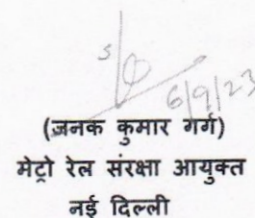 6/9/23
(जनक कुमार गर्ग)
मेट्रो रेल संरक्षा आयुक्त
नई दिल्ली